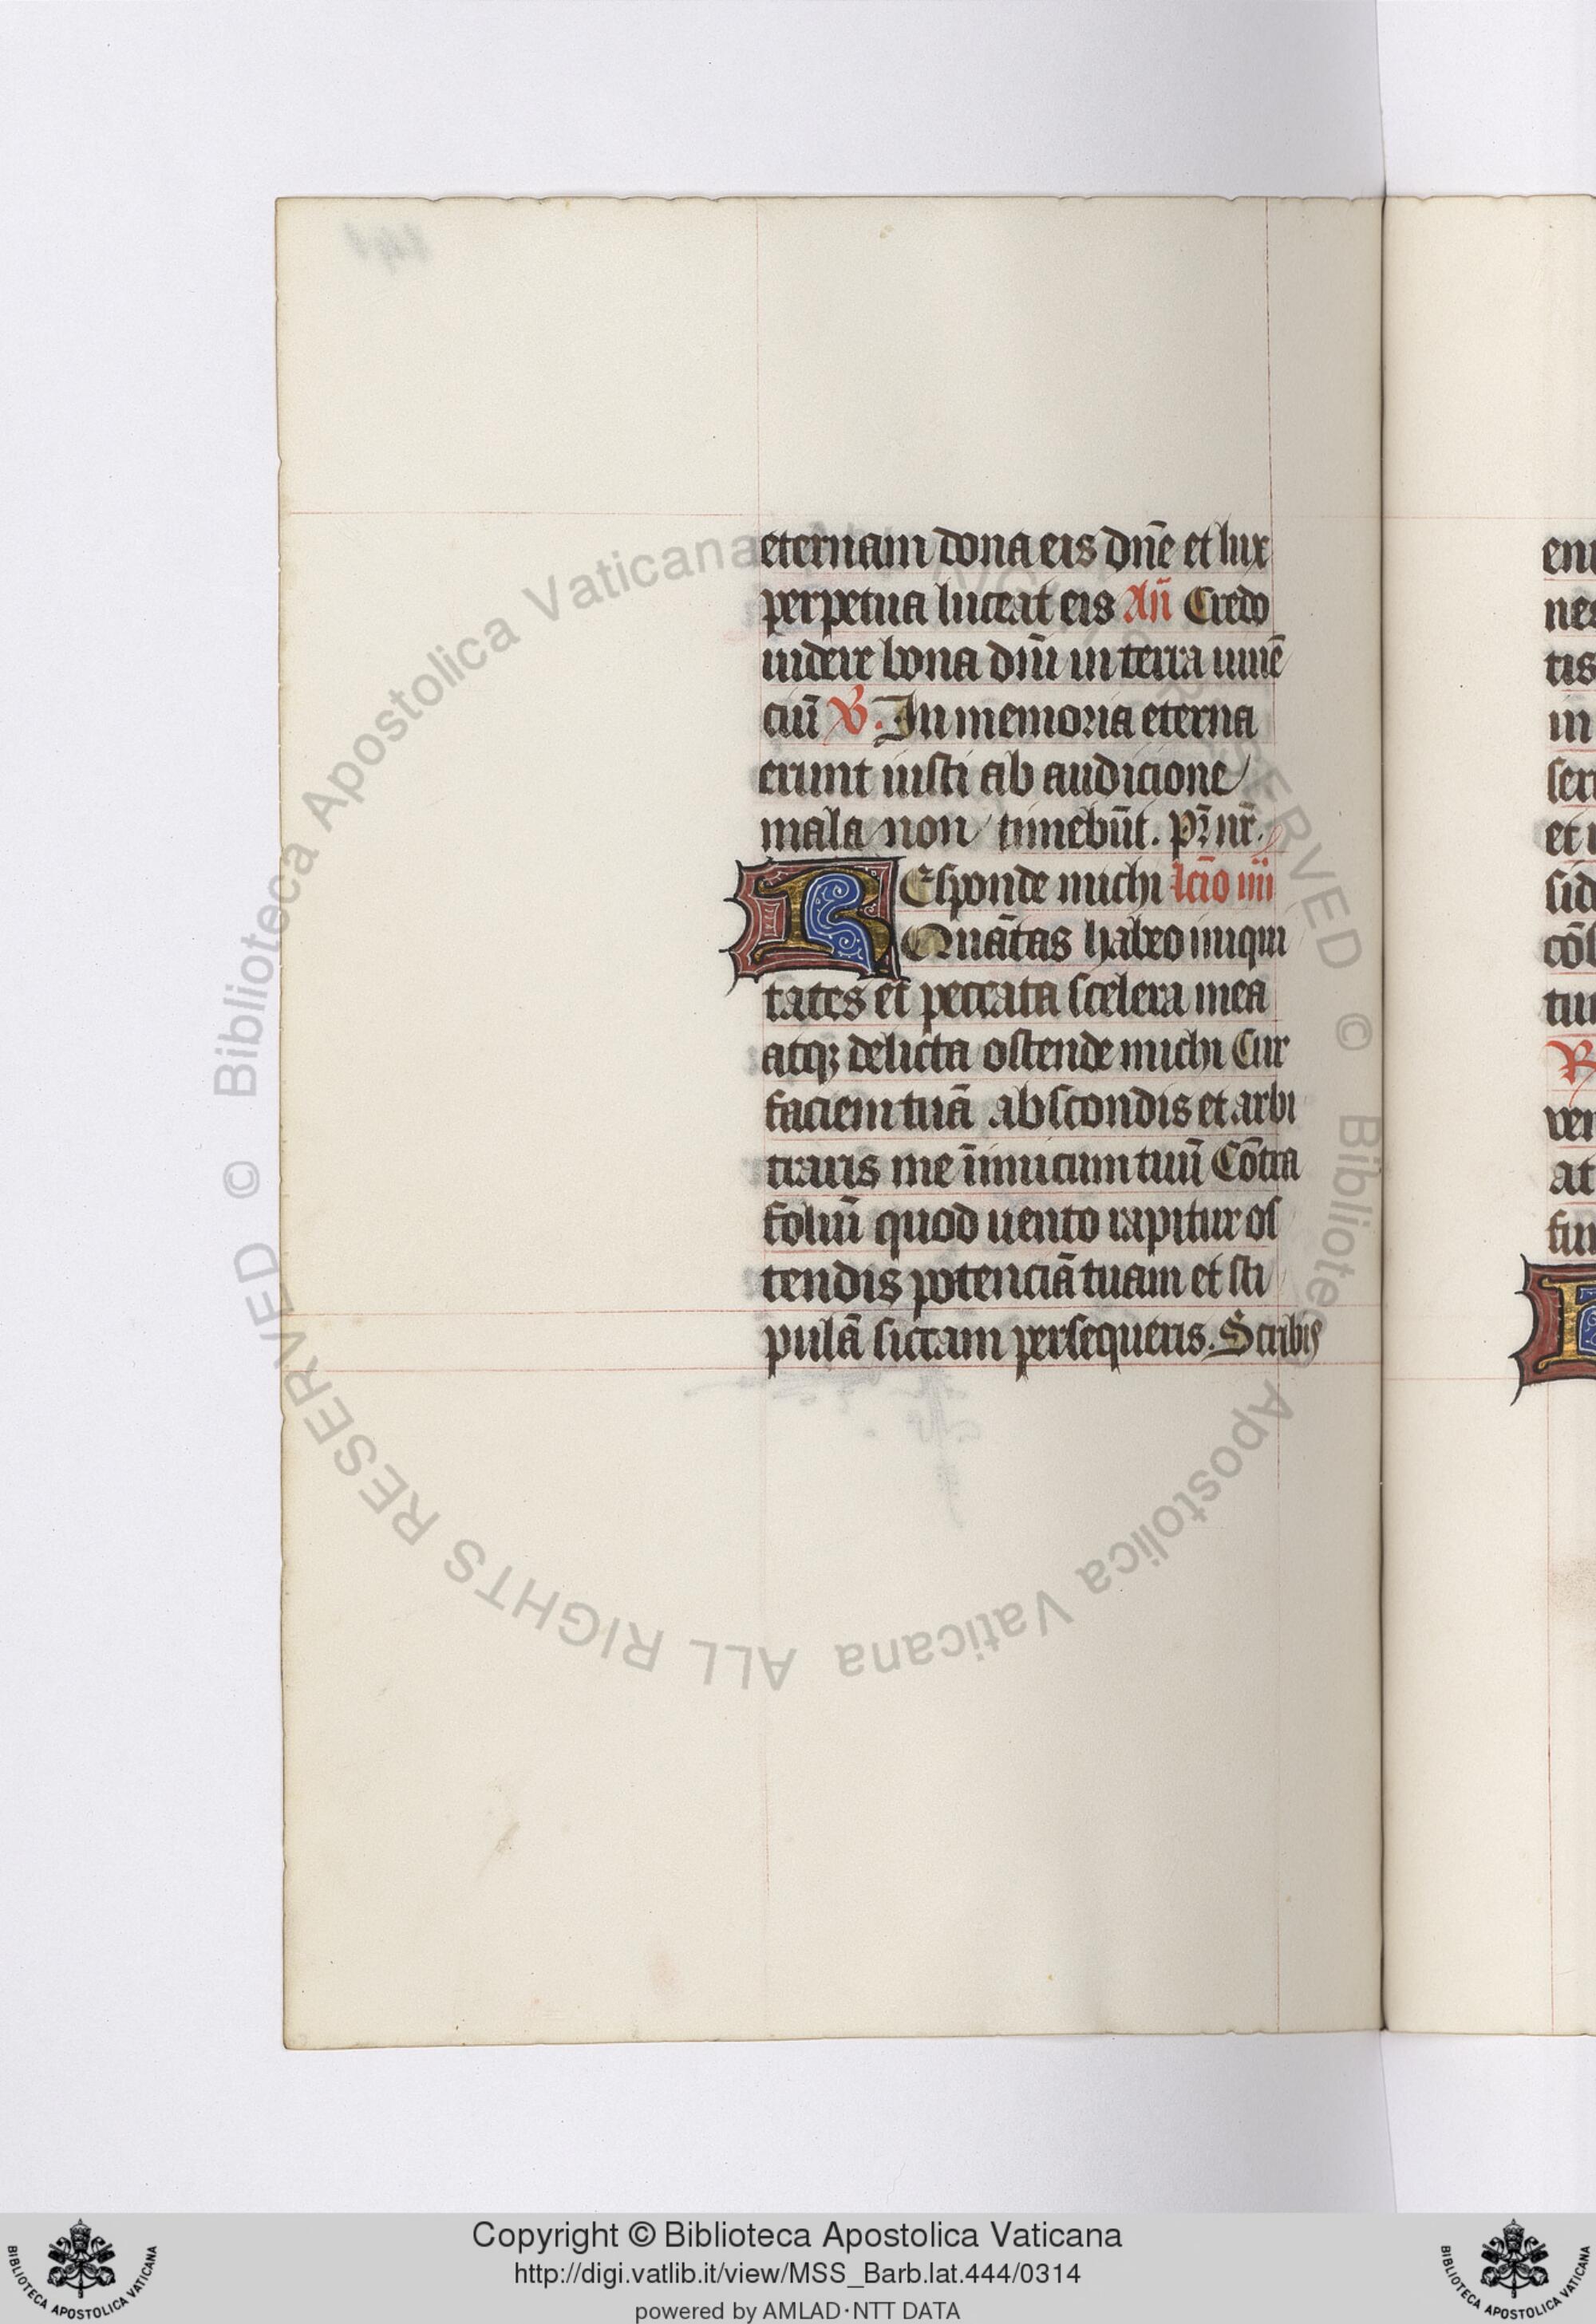 eternam dona eis dn̄e et lux
perpetua luceat eis An̄ Credo
uidere bona dn̄i in terra uiuē
ciū V. In memoria eterna
erunt iusti ab audicione
mala non timebūt. Pr̄ nr̄.
Responde michi lcīo iiii
Quātas habeo iniqui
tates et peccata scelera mea
atqꝫ delicta ostende michi Cur
faciem tuā abscondis et arbi
traris me īimicum tuū Cōtra
foliū quod uento rapitur os
tendis potenciā tuam et sti
pulā siccam persequeris. Scribis
eni
nes
tis
in
seri
et i
sid
cōs
tui
R
ver
at
fin
© Biblioteca Apostolica Vaticana ALL RIGHTS RESERVED © Biblioteca Apostolica Vaticana ALL RIGHTS RESERVED
Copyright © Biblioteca Apostolica Vaticana
http://digi.vatlib.it/view/MSS_Barb.lat.444/0314
powered by AMLAD·NTT DATA
BIBLIOTECA APOSTOLICA VATICANA
BIBLIOTECA APOSTOLICA VATICANA